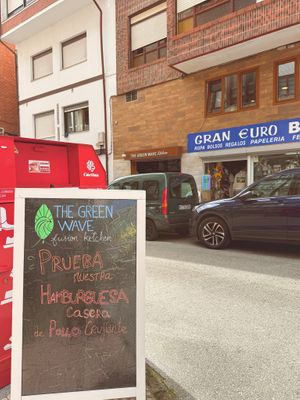 THE GREEN
WAVE
fusion kitchen
PRUEBA
nuestra
HAMBURGUESA
CASERA
de POLLO Crujiente
THE GREEN WAVE
GRAN €URO B
ROPA BOLSOS REGALOS PAPELERIA
Cáritas